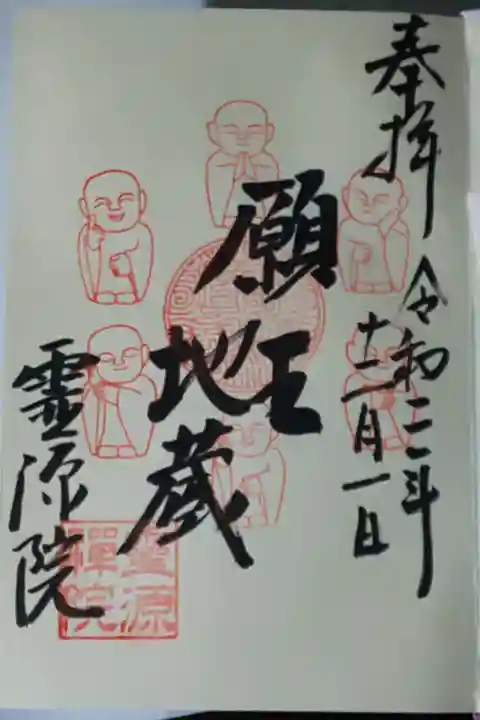 奉拝
令和三年
十二月一日
願王
地蔵
霊源院
霊源
禅院